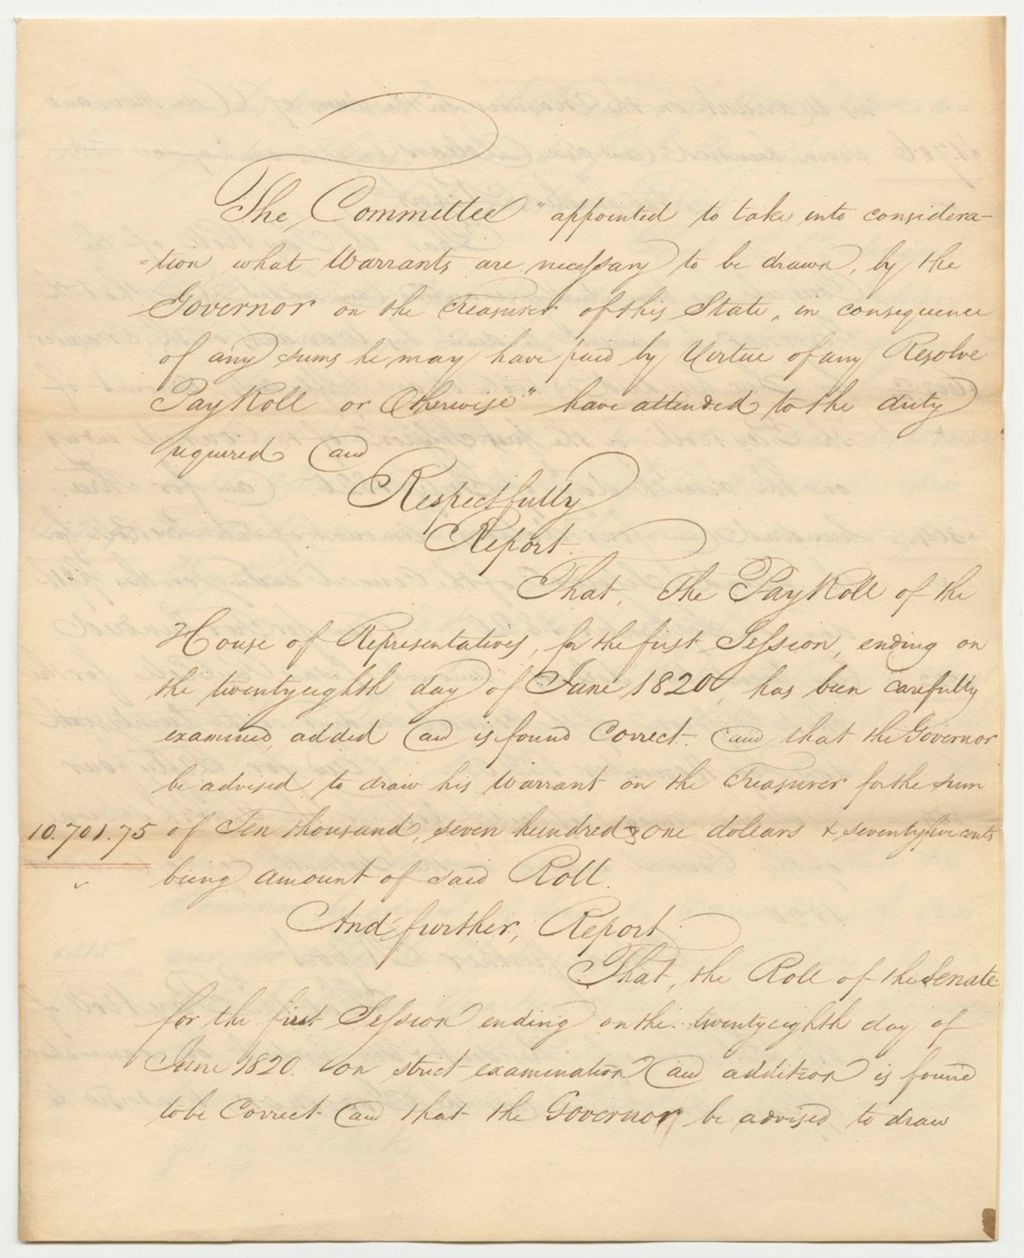 The Committee "appointed to take into considera-
=tion what Warrants are necessary to be drawn, by the
Governor on the Treasurer of this State, in consequence
of any sums he may have paid by Virtue of any Resolve
Pay Roll or Otherwise" have attended to the duty
required and
Respectfully
Report.
That, The Pay Roll of the
House of Representatives, for the first Session, ending on
the twentyeighth day of June 1820, has been carefully
examined, added and is found Correct. and that the Governor
be advised to draw his Warrant on the Treasurer for the sum
10.701.75 of Ten thousand, seven hundred & one dollars & seventyfive cents
being amount of said Roll.
And further, Report
That, the Roll of the Senate
for the first Session ending on the twentyeighth day of
June 1820. on strict examination and addition is found
to be Correct and that the Governor be advised to draw